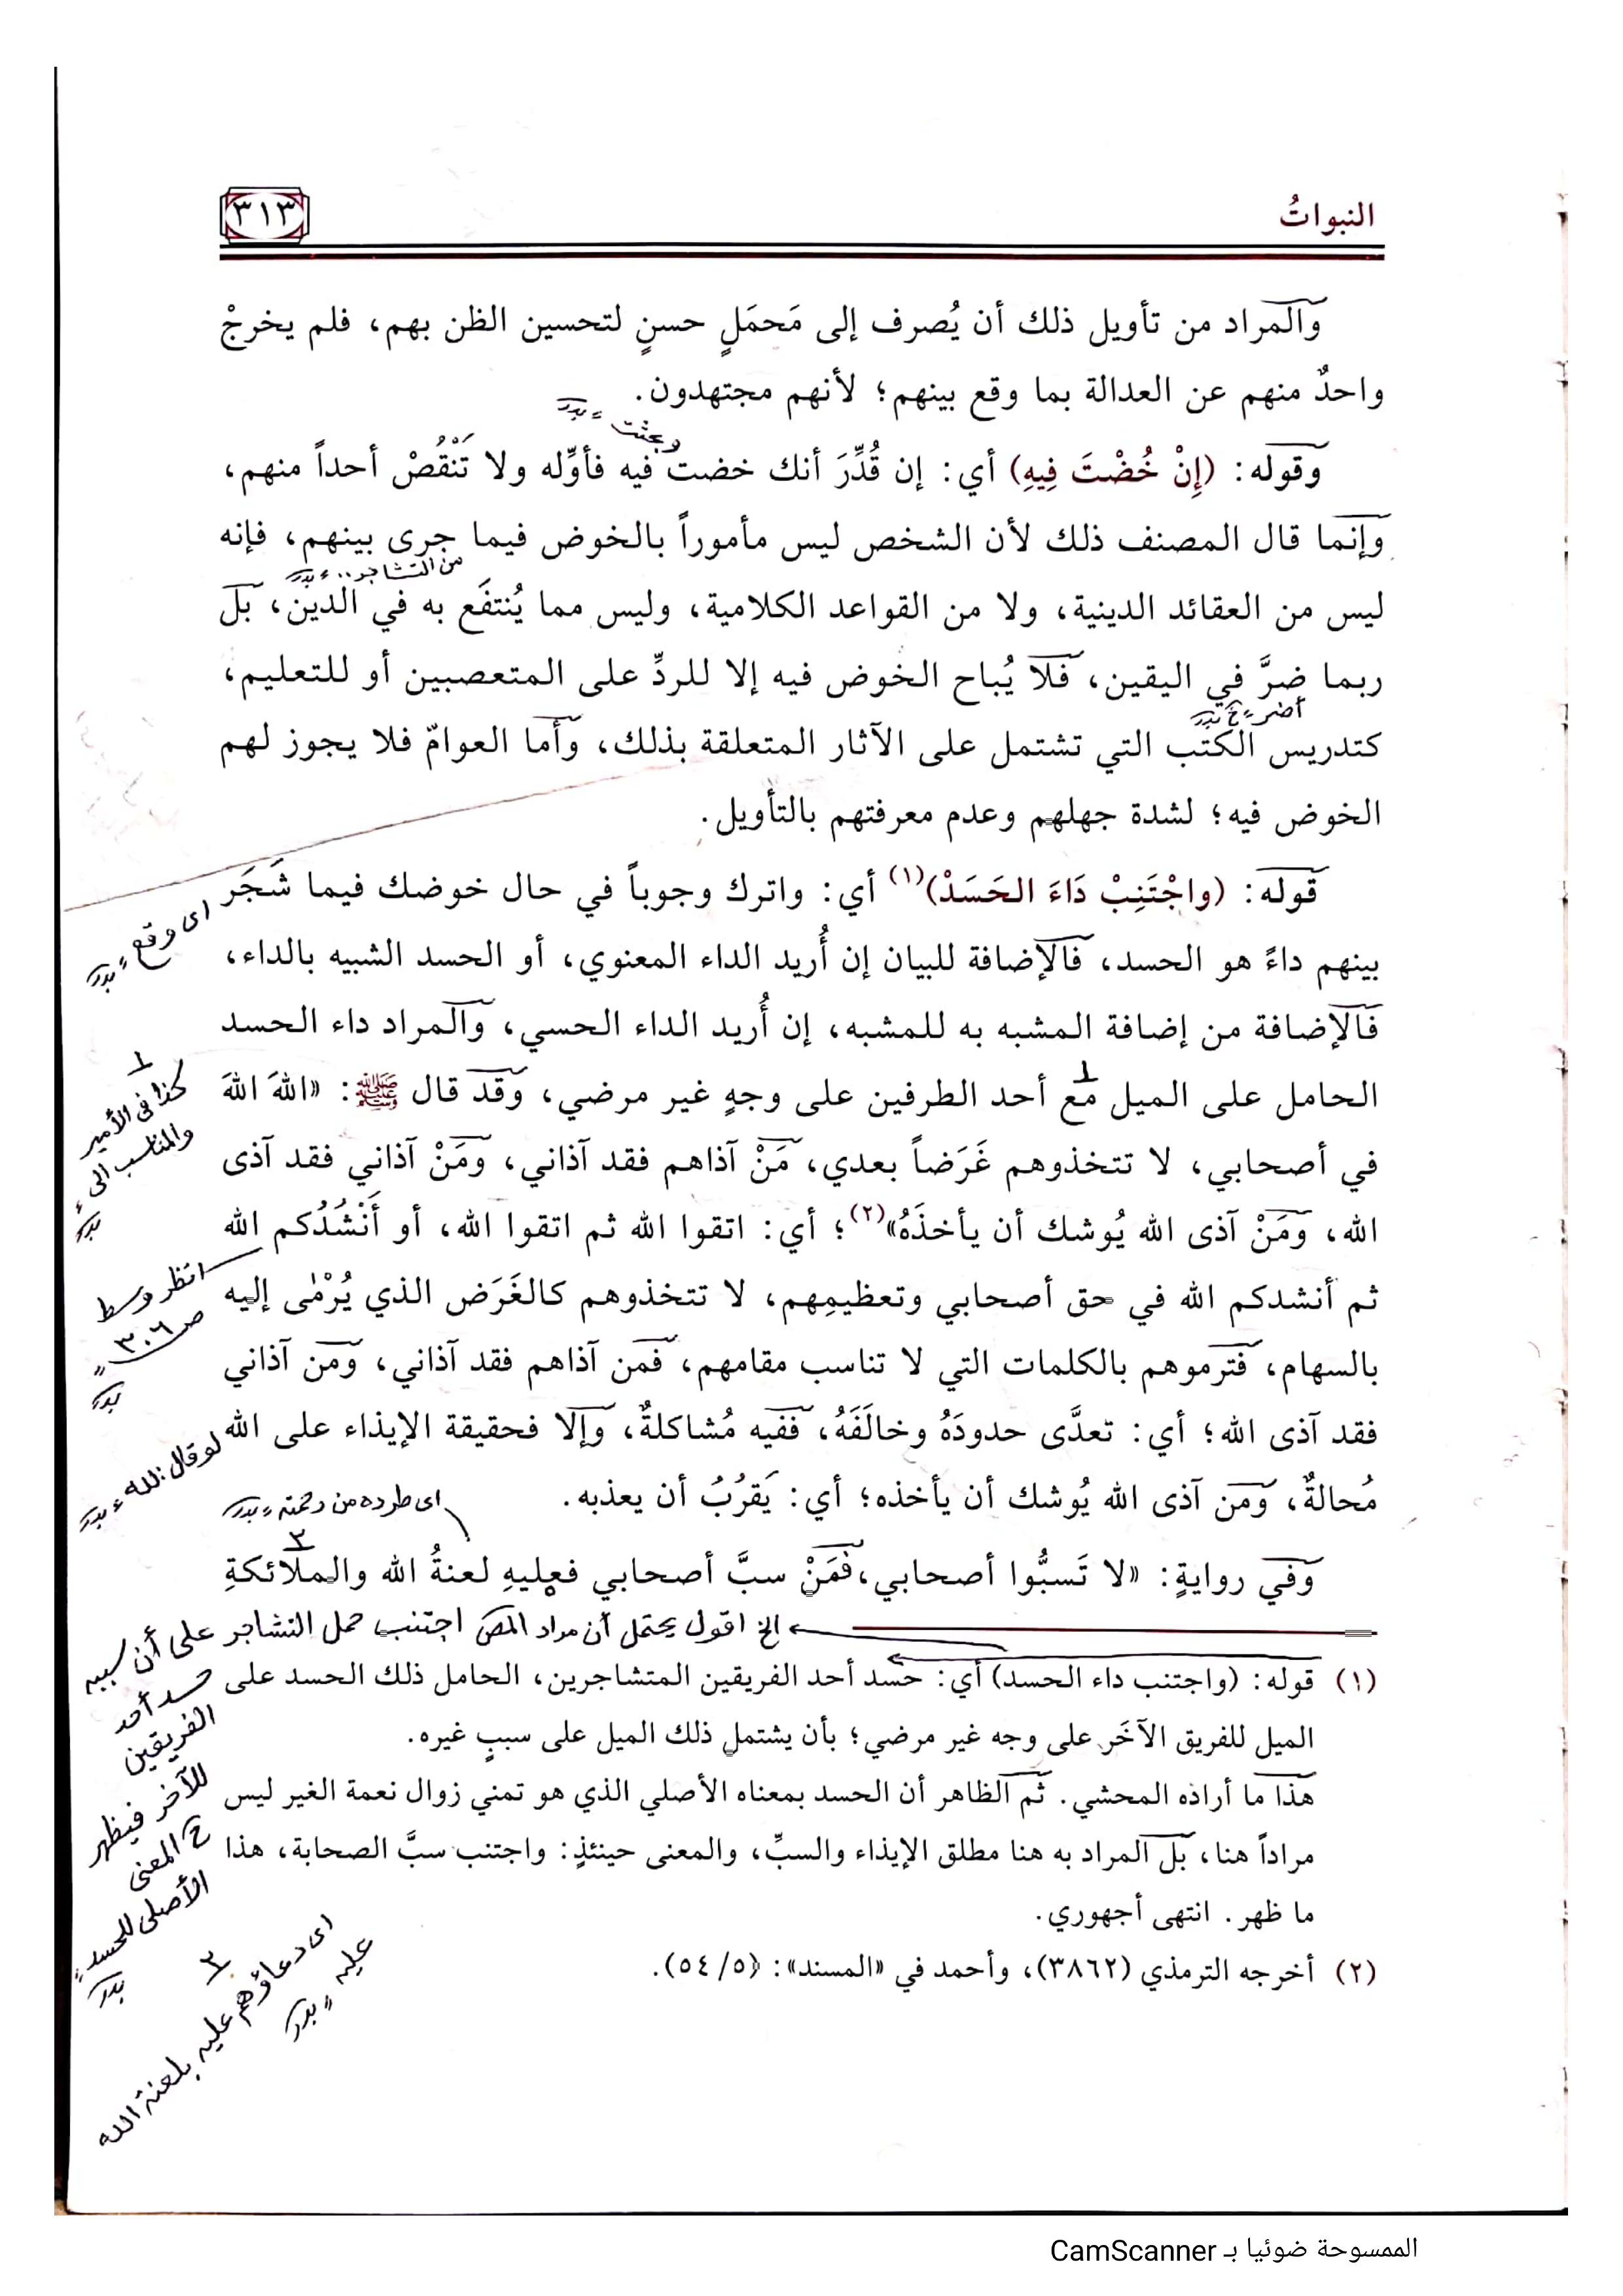 النبواتُ
٣١٣
والمراد من تأويل ذلك أن يُصرف إلى مَحمَلٍ حسنٍ لتحسين الظن بهم، فلم يخرجْ
واحدٌ منهم عن العدالة بما وقع بينهم؛ لأنهم مجتهدون.
وبحثت ٍ بدر
وقوله: (إِنْ خُضْتَ فِيهِ) أي: إن قُدِّرَ أنك خضت فيه فأوِّله ولا تَنْقُصْ أحداً منهم،
وإنما قال المصنف ذلك لأن الشخص ليس مأموراً بالخوض فيما جرى بينهم، فإنه
من التشاجر.. ٍ بدر
ليس من العقائد الدينية، ولا من القواعد الكلامية، وليس مما يُنتفَع به في الدين، بل
ربما ضرَّ في اليقين، فلا يُباح الخوض فيه إلا للردِّ على المتعصبين أو للتعليم،
أضر ٍ خ بدر
كتدريس الكتب التي تشتمل على الآثار المتعلقة بذلك، وأما العوامّ فلا يجوز لهم
الخوض فيه؛ لشدة جهلهم وعدم معرفتهم بالتأويل.
قوله: (واجْتَنِبْ دَاءَ الحَسَدْ)(١) أي: واترك وجوباً في حال خوضك فيما شَجَر
اى وقع ٍ بدر
بينهم داءً هو الحسد، فالإضافة للبيان إن أُريد الداء المعنوي، أو الحسد الشبيه بالداء،
فالإضافة من إضافة المشبه به للمشبه، إن أُريد الداء الحسي، والمراد داء الحسد
الحامل على الميل مع أحد الطرفين على وجهٍ غير مرضي، وقد قال ﷺ: «اللهَ اللهَ
١
كذا فى الأمير
والمناسب الى ٍ
بدر
في أصحابي، لا تتخذوهم غَرَضاً بعدي، مَنْ آذاهم فقد آذاني، ومَنْ آذاني فقد آذى
الله، ومَنْ آذى الله يُوشك أن يأخذَهُ»(٢)؛ أي: اتقوا الله ثم اتقوا الله، أو أَنْشُدُكم الله
انظر وسط
صـ ٣٠٦ ٍ
بدر
ثم أنشدكم الله في حق أصحابي وتعظيمِهم، لا تتخذوهم كالغَرَض الذي يُرْمٰى إليه
بالسهام، فترموهم بالكلمات التي لا تناسب مقامهم، فمَن آذاهم فقد آذاني، ومَن آذاني
فقد آذى الله؛ أي: تعدَّى حدودَهُ وخالَفَهُ، ففيه مُشاكلةٌ، وإلا فحقيقة الإيذاء على الله
لو قال: لله ٍ بدر
مُحالةٌ، ومَن آذى الله يُوشك أن يأخذه؛ أي: يَقرُبُ أن يعذبه.
اى طرده من رحمته ٍ بدر
وفي روايةٍ: «لا تَسبُّوا أصحابي، فمَنْ سبَّ أصحابي فعليهِ لعنةُ الله والملائكةِ
الخ اقول يحتمل أن مراد المص اجتنب حمل التشاجر على أن سببه
حسد أحد
الفريقين
للآخر فيظهر
ح المعنى
الأصلى للحسد ٍ
بدر
(١) قوله: (واجتنب داء الحسد) أي: حسد أحد الفريقين المتشاجرين، الحامل ذلك الحسد على
الميل للفريق الآخَر على وجه غير مرضي؛ بأن يشتمل ذلك الميل على سببٍ غيره.
هذا ما أراده المحشي. ثم الظاهر أن الحسد بمعناه الأصلي الذي هو تمني زوال نعمة الغير ليس
مراداً هنا، بل المراد به هنا مطلق الإيذاء والسبِّ، والمعنى حينئذٍ: واجتنب سبَّ الصحابة، هذا
ما ظهر. انتهى أجهوري.
(٢) أخرجه الترمذي (٣٨٦٢)، وأحمد في «المسند»: (٥/ ٥٤).
٣
اى دعاؤهم عليه بلعنة الله
عليه ٍ بدر
الممسوحة ضوئيا بـ CamScanner